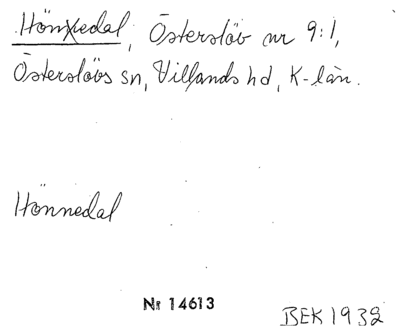 Hönnedal, Österslöv nr 9:1,
Österslövs sn, Villands hd, K-län.
Hönnedal
Nr 14613
BEK 1932